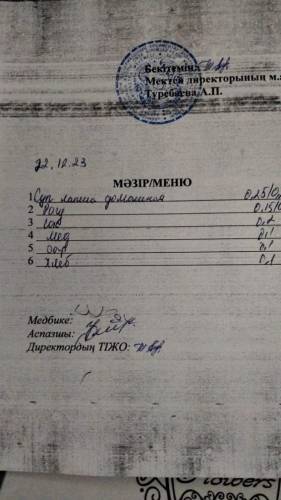 Бекітемін
Мектеп директорының м.а
Туребаева А.П.
22.12.23
МӘЗІР/МЕНЮ
1 Суп лапша домашняя 0,25/0,
2 0,15/0
3 сок 0,2
4 мед 0,1
5 0,1
6 хлеб 0,1
Медбике:
Аспазшы:
Директордың ТІЖО: